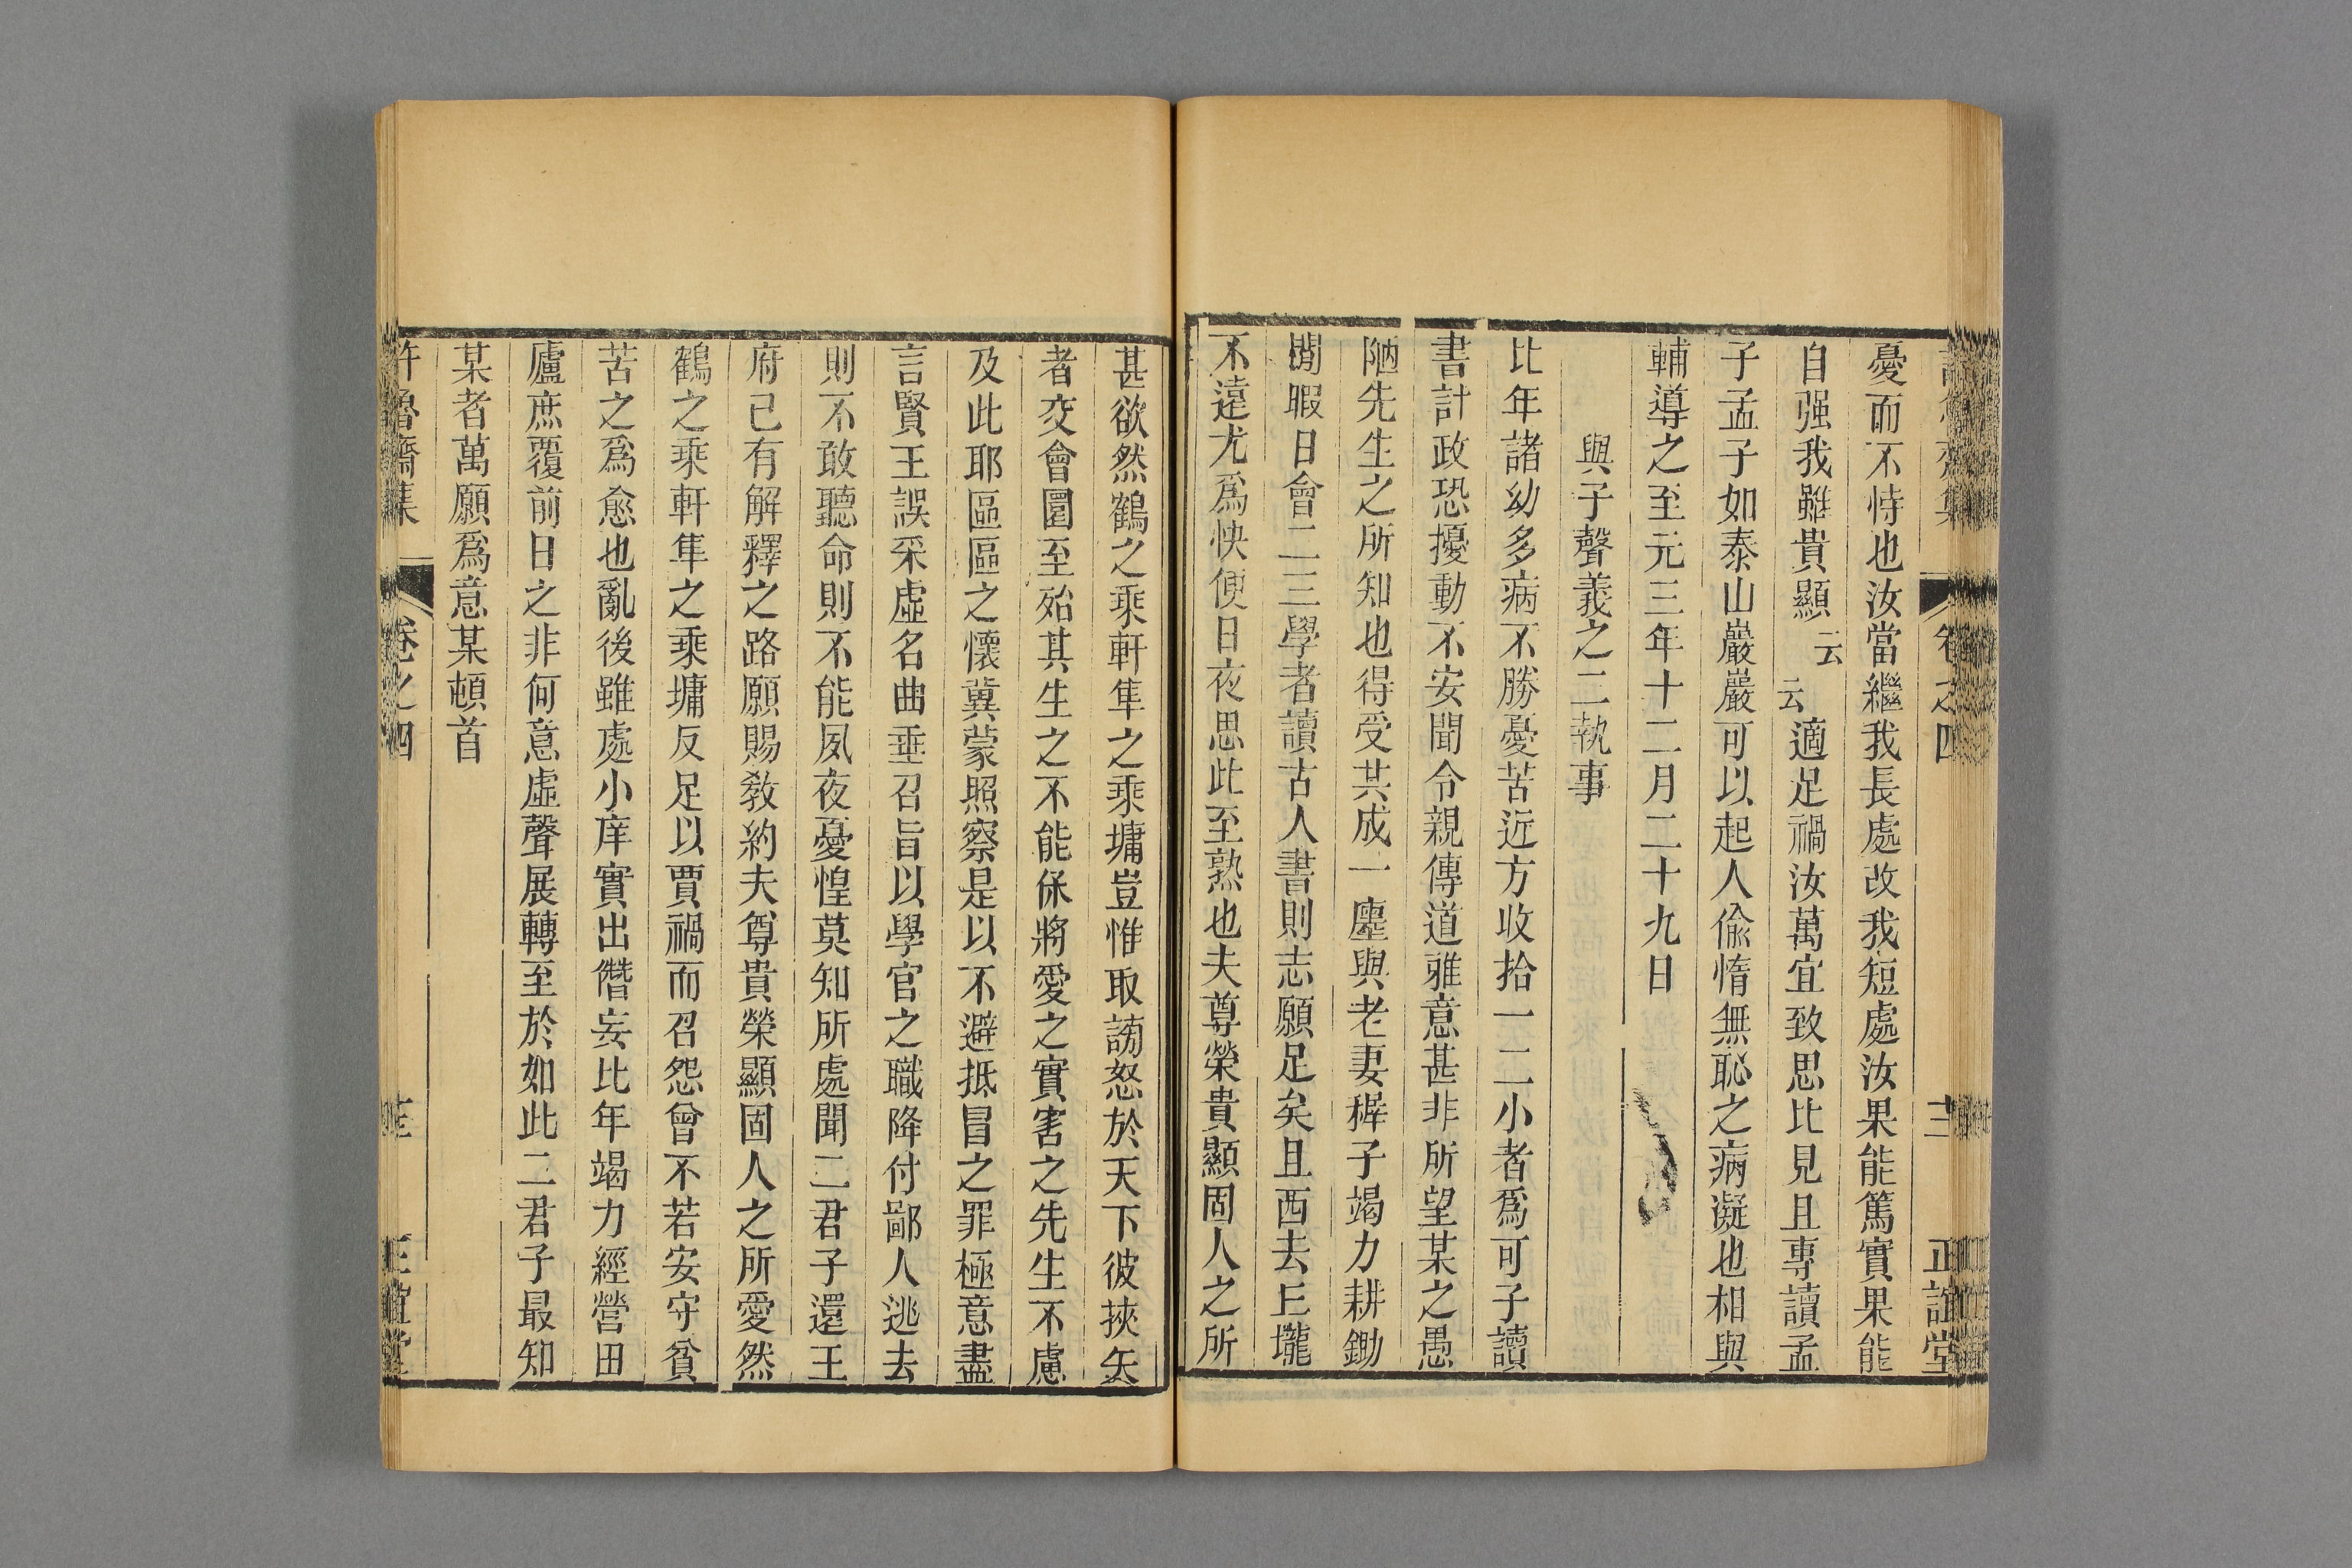 憂而不恃也汝當繼我長處改我短處汝果能篤實果能
自强我雖貴顯云云適足禍汝萬宜致思比見且專讀孟
子孟子如泰山巖巖可以起人偷惰無恥之病凝也相與
輔導之至元三年十二月二十九日
與子聲義之二執事
比年諸幼多病不勝憂苦近方收拾一二小者爲可子讀
書計政恐擾動不安聞令親傳道雅意甚非所望某之愚
陋先生之所知也得受其成一廛與老妻稺子竭力耕鋤
閒暇日會二三學者讀古人書則志願足矣且西去丘壠
不遠尤爲快便日夜思此至熟也夫尊榮貴顯固人之所
甚欲然鶴之乘軒隼之乘墉豈惟取謗怒於天下彼挾矢
者交會圜至殆其生之不能保將愛之實害之先生不慮
及此耶區區之懷冀蒙照察是以不避抵冒之罪極意盡
言賢王誤采虛名曲垂召旨以學官之職降付鄙人逃去
則不敢聽命則不能夙夜憂惶莫知所處聞二君子還王
府已有解釋之路願賜教約夫尊貴榮顯固人之所愛然
鶴之乘軒隼之乘墉反足以賈禍而召怨曾不若安守貧
苦之爲愈也亂後雖處小庠實出僭妄比年竭力經營田
廬庶覆前日之非何意虛聲展轉至於如此二君子最知
某者萬願爲意某頓首
許魯齋集 卷之四 正誼堂